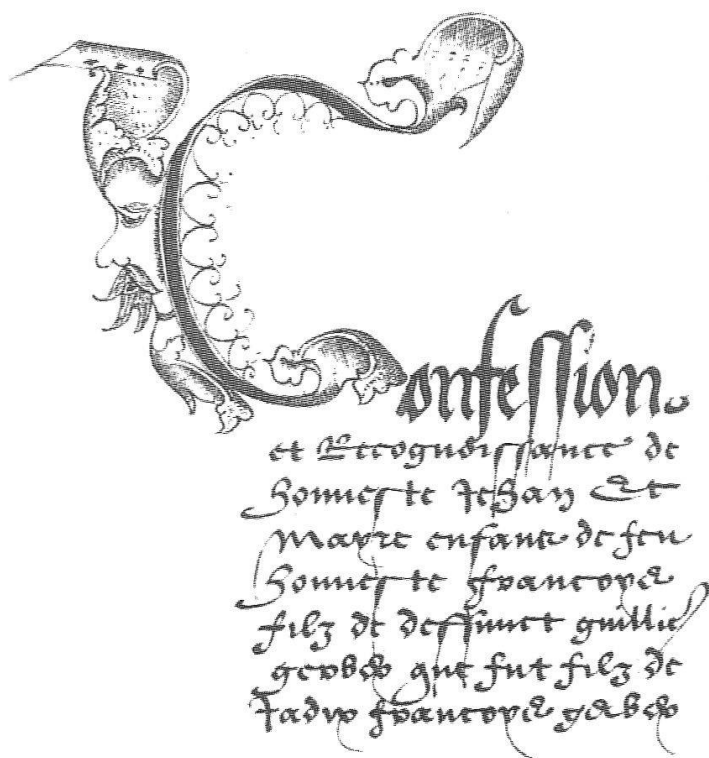 Confession
et Recognoissance de
honneste Jehan Et
Mayre enfans de feu
honneste francoys
filz de deffunct guillie
gerbex que fut filz de
Jadix francoys gerbex